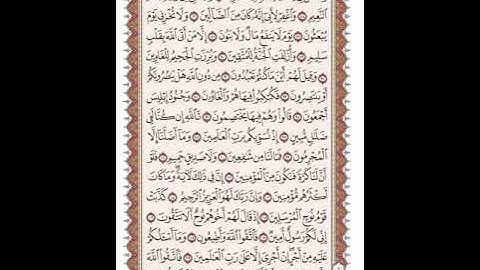 ٱلنَّعِيمِ ۝ وَٱغۡفِرۡ لِأَبِيٓ إِنَّهُۥ كَانَ مِنَ ٱلضَّآلِّينَ ۝ وَلَا تُخۡزِنِي يَوۡمَ
يُبۡعَثُونَ ۝ يَوۡمَ لَا يَنفَعُ مَالٞ وَلَا بَنُونَ ۝ إِلَّا مَنۡ أَتَى ٱللَّهَ بِقَلۡبٖ
سَلِيمٖ ۝ وَأُزۡلِفَتِ ٱلۡجَنَّةُ لِلۡمُتَّقِينَ ۝ وَبُرِّزَتِ ٱلۡجَحِيمُ لِلۡغَاوِينَ
۝ وَقِيلَ لَهُمۡ أَيۡنَ مَا كُنتُمۡ تَعۡبُدُونَ ۝ مِن دُونِ ٱللَّهِ هَلۡ يَنصُرُونَكُمۡ
أَوۡ يَنتَصِرُونَ ۝ فَكُبۡكِبُواْ فِيهَا هُمۡ وَٱلۡغَاوُۥنَ ۝ وَجُنُودُ إِبۡلِيسَ
أَجۡمَعُونَ ۝ قَالُواْ وَهُمۡ فِيهَا يَخۡتَصِمُونَ ۝ تَٱللَّهِ إِن كُنَّا لَفِي
ضَلَٰلٖ مُّبِينٍ ۝ إِذۡ نُسَوِّيكُم بِرَبِّ ٱلۡعَٰلَمِينَ ۝ وَمَآ أَضَلَّنَآ إِلَّا
ٱلۡمُجۡرِمُونَ ۝ فَمَا لَنَا مِن شَٰفِعِينَ ۝ وَلَا صَدِيقٍ حَمِيمٖ ۝ فَلَوۡ
أَنَّ لَنَا كَرَّةٗ فَنَكُونَ مِنَ ٱلۡمُؤۡمِنِينَ ۝ إِنَّ فِي ذَٰلِكَ لَأٓيَةٗۖ وَمَا كَانَ
أَكۡثَرُهُم مُّؤۡمِنِينَ ۝ وَإِنَّ رَبَّكَ لَهُوَ ٱلۡعَزِيزُ ٱلرَّحِيمُ ۝ كَذَّبَتۡ
قَوۡمُ نُوحٍ ٱلۡمُرۡسَلِينَ ۝ إِذۡ قَالَ لَهُمۡ أَخُوهُمۡ نُوحٌ أَلَا تَتَّقُونَ ۝
إِنِّي لَكُمۡ رَسُولٌ أَمِينٞ ۝ فَٱتَّقُواْ ٱللَّهَ وَأَطِيعُونِ ۝ وَمَآ أَسۡـَٔلُكُمۡ
عَلَيۡهِ مِنۡ أَجۡرٍۖ إِنۡ أَجۡرِيَ إِلَّا عَلَىٰ رَبِّ ٱلۡعَٰلَمِينَ ۝ فَٱتَّقُواْ ٱللَّهَ